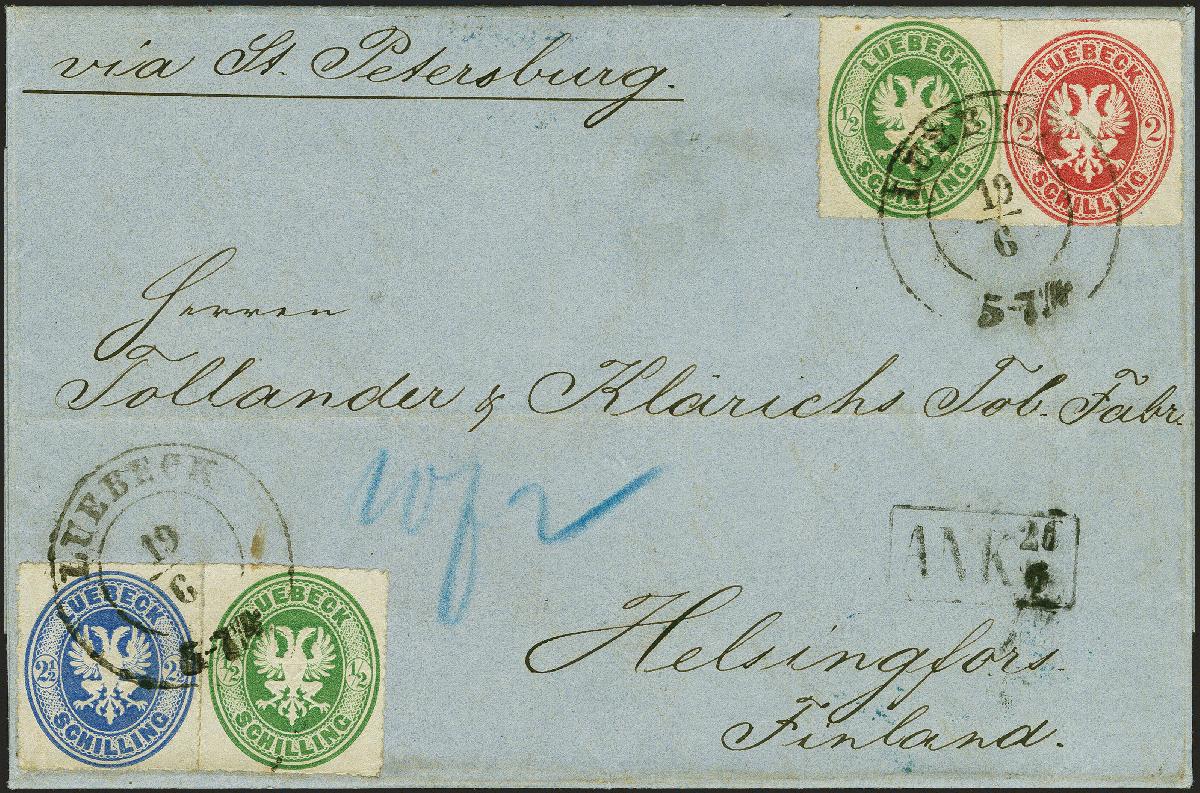 via St. Petersburg.
LUEBECK
½
SCHILLING
LUEBECK
2 2
SCHILLING
LUEB
19
6
5-7
Herren
Tollander & Klärichs Tob. Fabr.
LUEBECK
19
6
5-7
ANK
26
LUEBECK
2½ 2½
SCHILLING
LUEBECK
½ ½
SCHILLING
Helsingfors
Finland.